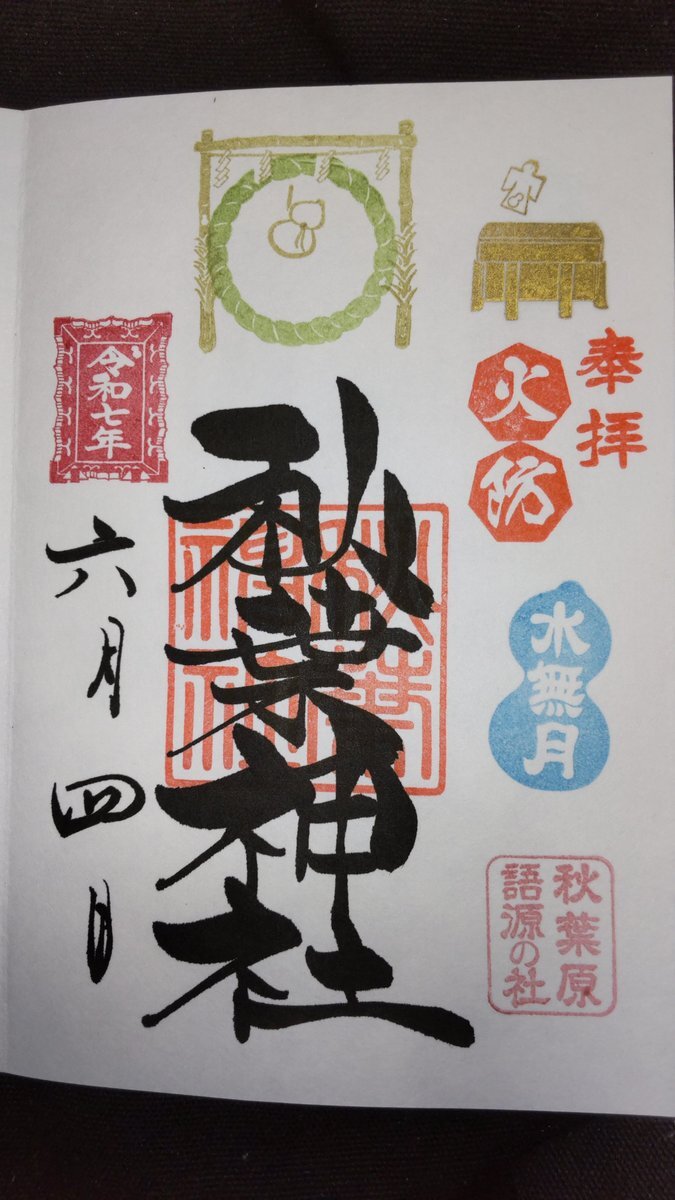 奉拝
火防
水無月
秋葉原
語源の社
秋葉神社
秋葉
神社
令和七年
六月四日